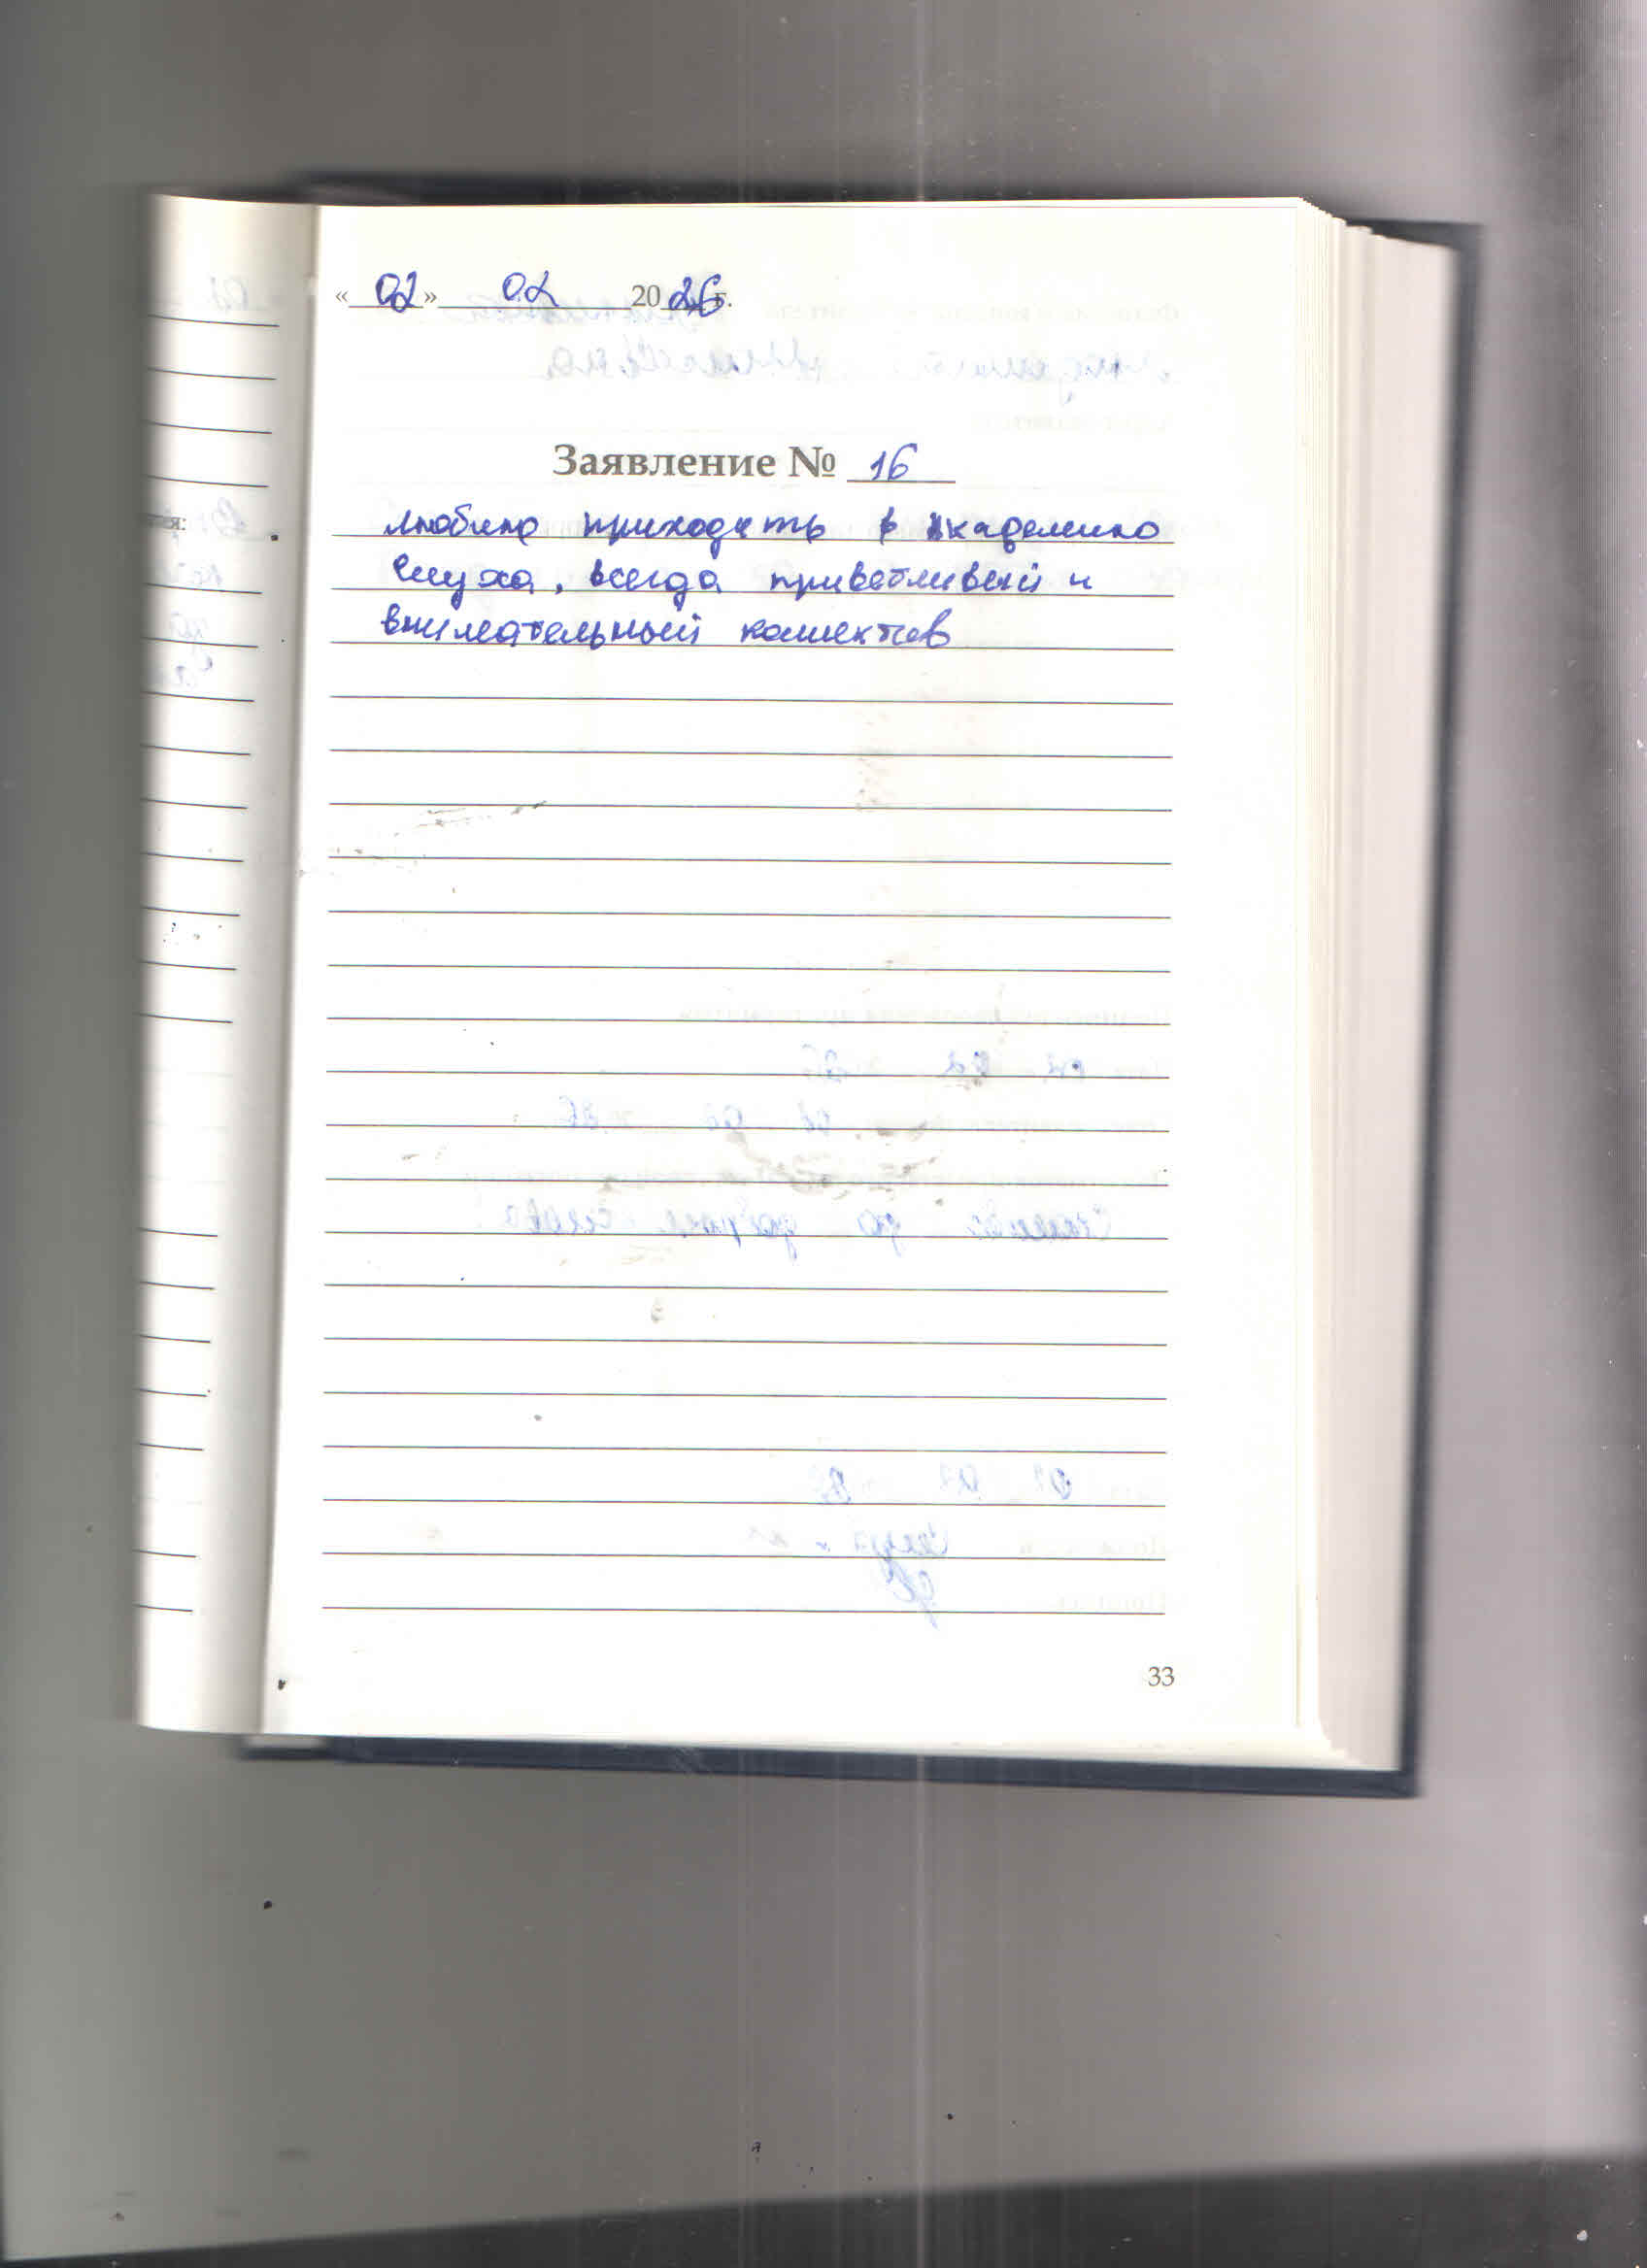 « 02 » 02 2026 г.
Заявление № 16
люблю приходить в академию
слуха, всегда приветливый и
внимательный коллектив
33